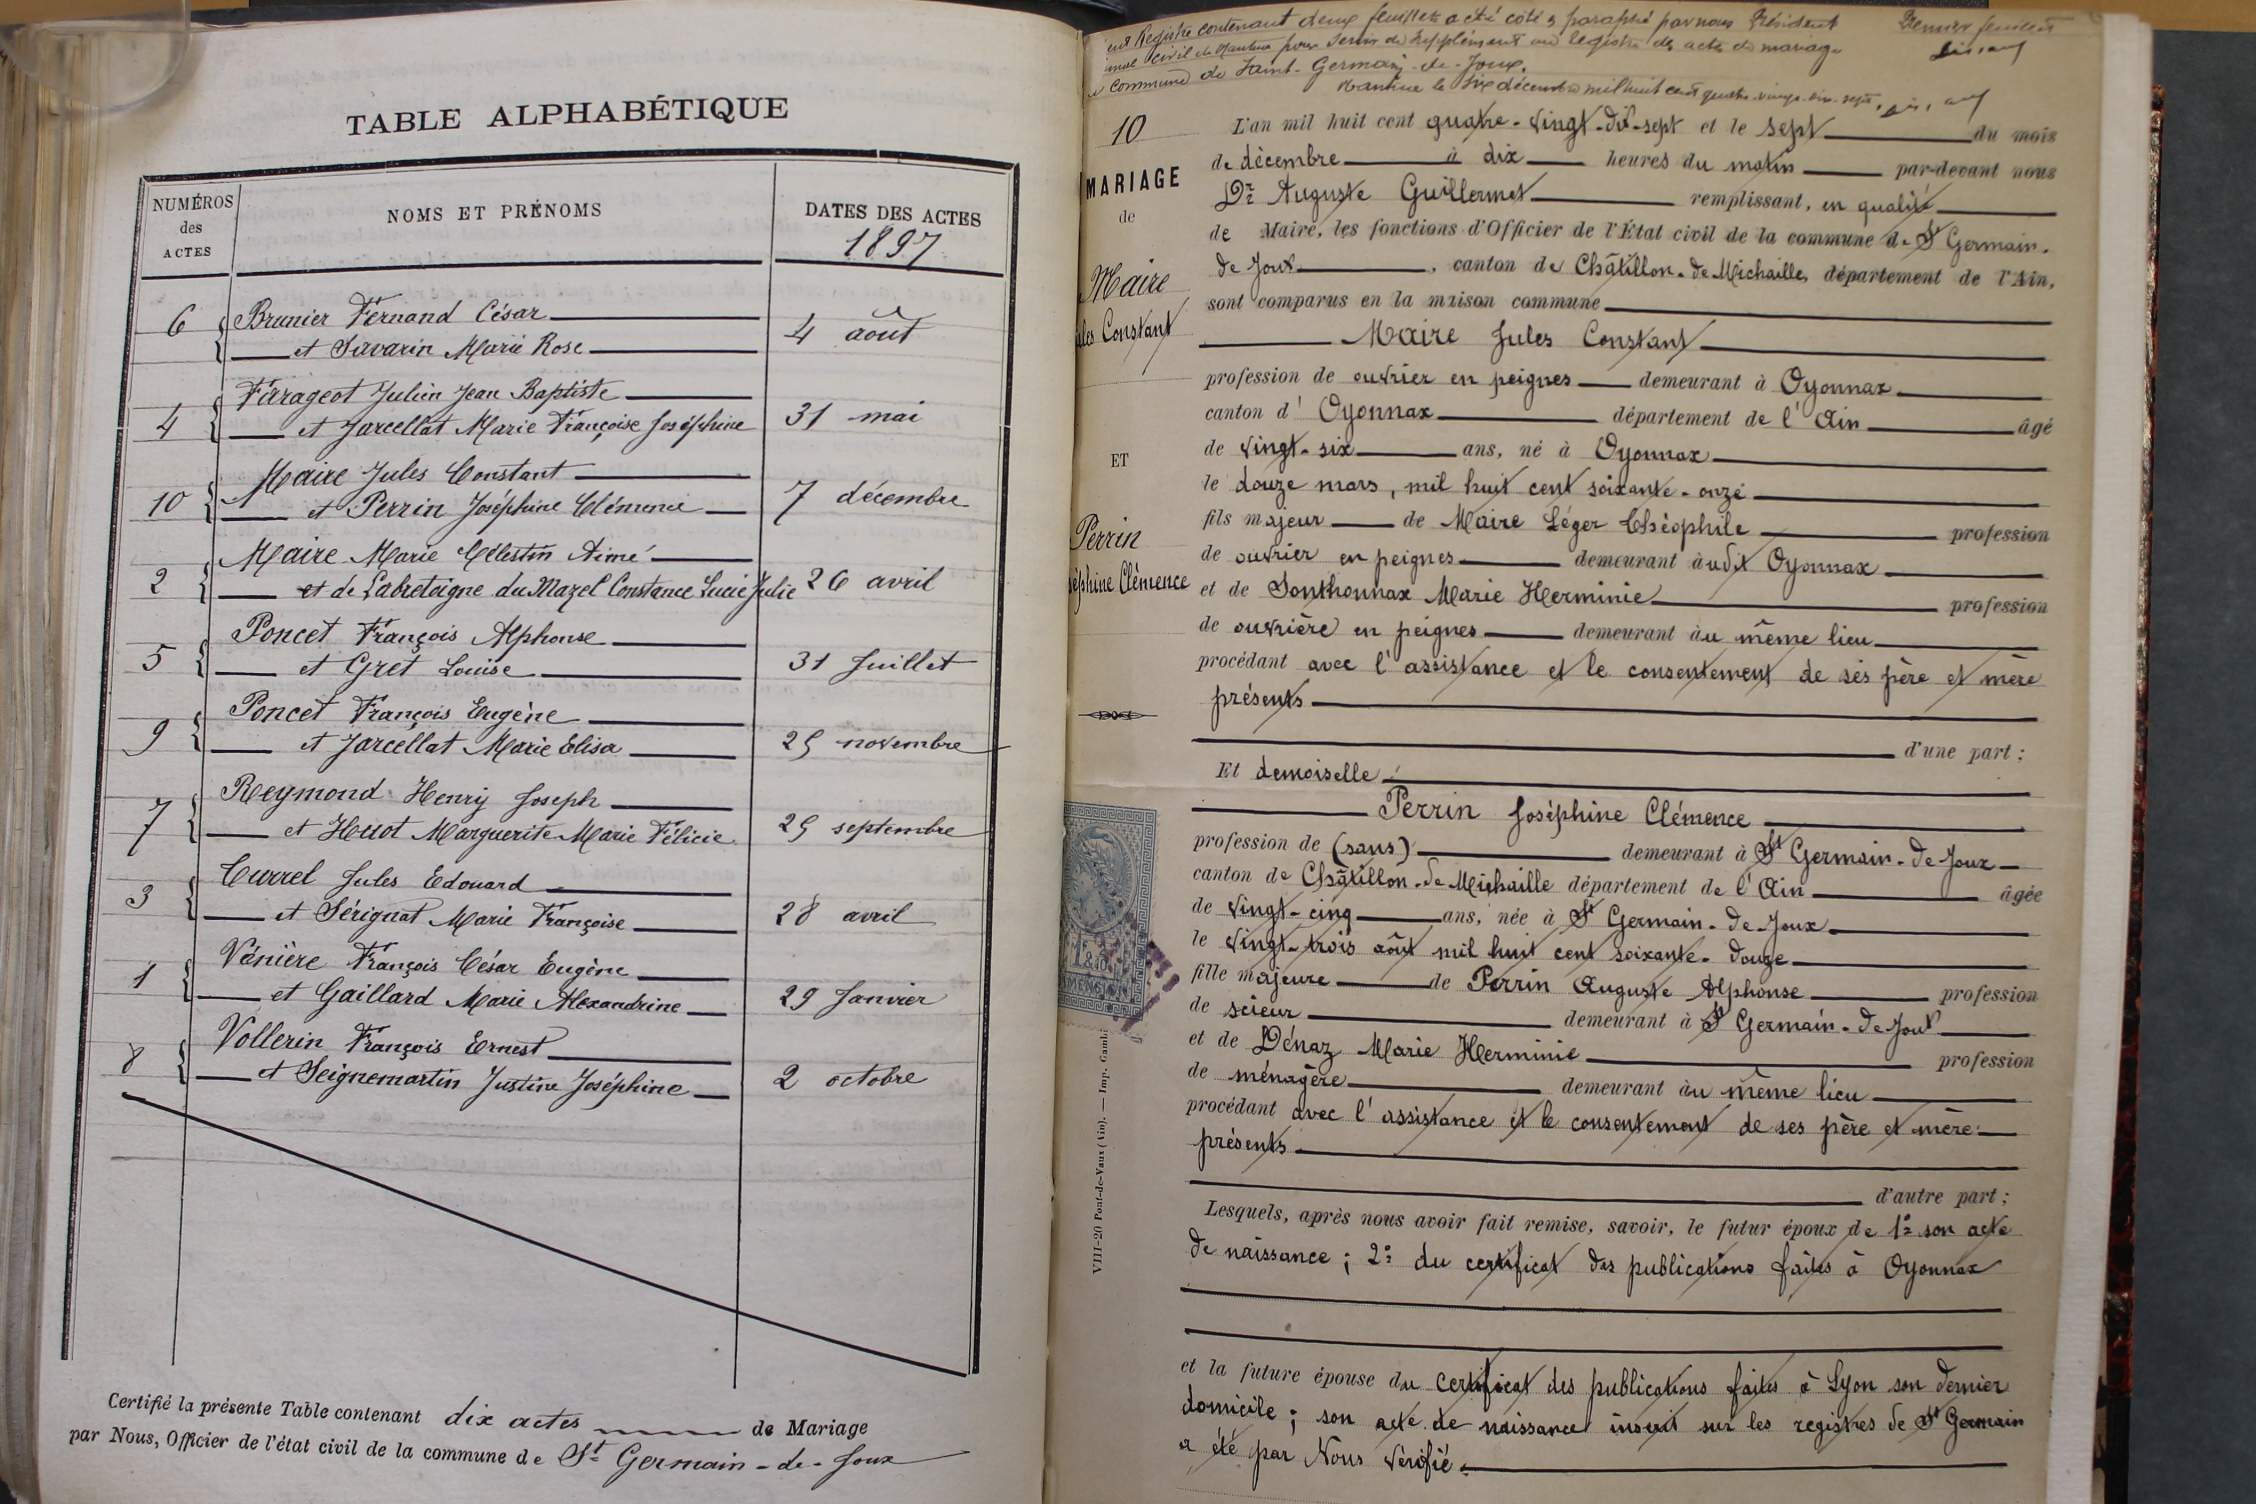 TABLE ALPHABÉTIQUE
NUMÉROS
des
ACTES
NOMS ET PRÉNOMS
DATES DES ACTES
1897
6
Brunier Fernand César
et Savarin Marie Rose
4 août
4
Farageot Julien Jean Baptiste
et Jarcellat Marie Françoise Joséphine
31 mai
10
Maire Jules Constant
et Perrin Joséphine Clémence
7 décembre
2
Maire Marie Célestin Aimé
et de Labretoigne du Mazel Constance Lucie Julie
26 avril
5
Poncet François Alphonse
et Gret Louise
31 Juillet
9
Poncet François Eugène
et Jarcellat Marie Elisa
25 novembre
7
Reymond Henry Joseph
et Huot Marguerite Marie Félicie
25 septembre
3
Currel Jules Edouard
et Sérignat Marie Françoise
28 avril
1
Vénière François César Eugène
et Gaillard Marie Alexandrine
29 Janvier
8
Vollerin François Ernest
et Seignemartin Justine Joséphine
2 octobre
Certifié la présente Table contenant dix actes de Mariage
par Nous, Officier de l'état civil de la commune de St Germain-de-Joux
Registre contenant deux feuillets a été coté & paraphé par nous Président
civil de Nantua pour servir de supplément au registre des actes de mariage
commune de Saint-Germain-de-Joux.
Nantua le six décembre mil huit cent quatre-vingt-dix-sept.
Premier feuillet
10
MARIAGE
de
Maire
Jules Constant
ET
Perrin
Joséphine Clémence
L'an mil huit cent quatre-vingt-dix-sept et le sept du mois
de décembre à dix heures du matin par-devant nous
Dr Auguste Guillermet remplissant, en qualité
de Maire, les fonctions d'Officier de l'État civil de la commune de St Germain-
de Joux, canton de Châtillon-de-Michaille, département de l'Ain,
sont comparus en la maison commune
Maire Jules Constant
profession de ouvrier en peignes demeurant à Oyonnax
canton d'Oyonnax département de l'Ain âgé
de vingt-six ans, né à Oyonnax
le douze mars, mil huit cent soixante-onze
fils majeur de Maire Léger Théophile profession
de ouvrier en peignes demeurant audit Oyonnax
et de Sonthonnax Marie Herminie profession
de ouvrière en peignes demeurant au même lieu
procédant avec l'assistance et le consentement de ses père et mère
présents
d'une part :
Et demoiselle
Perrin Joséphine Clémence
profession de (sans) demeurant à St Germain-de Joux
canton de Châtillon-de Michaille département de l'Ain âgée
de vingt-cinq ans, née à St Germain-de-Joux
le vingt-trois août mil huit cent soixante-douze
fille majeure de Perrin Auguste Alphonse profession
de scieur demeurant à St Germain-de Joux
et de Dénaz Marie Herminie profession
de ménagère demeurant au même lieu
procédant avec l'assistance et le consentement de ses père et mère
présents
d'autre part ;
Lesquels, après nous avoir fait remise, savoir, le futur époux de 1° son acte
de naissance ; 2° du certificat des publications faites à Oyonnax
et la future épouse du certificat des publications faites à Lyon son dernier
domicile ; son acte de naissance inscrit sur les registres de St Germain
a été par Nous vérifié.
VIII-20 Pont-de-Vaux (Ain). — Imp. Gambi
DIMENSION